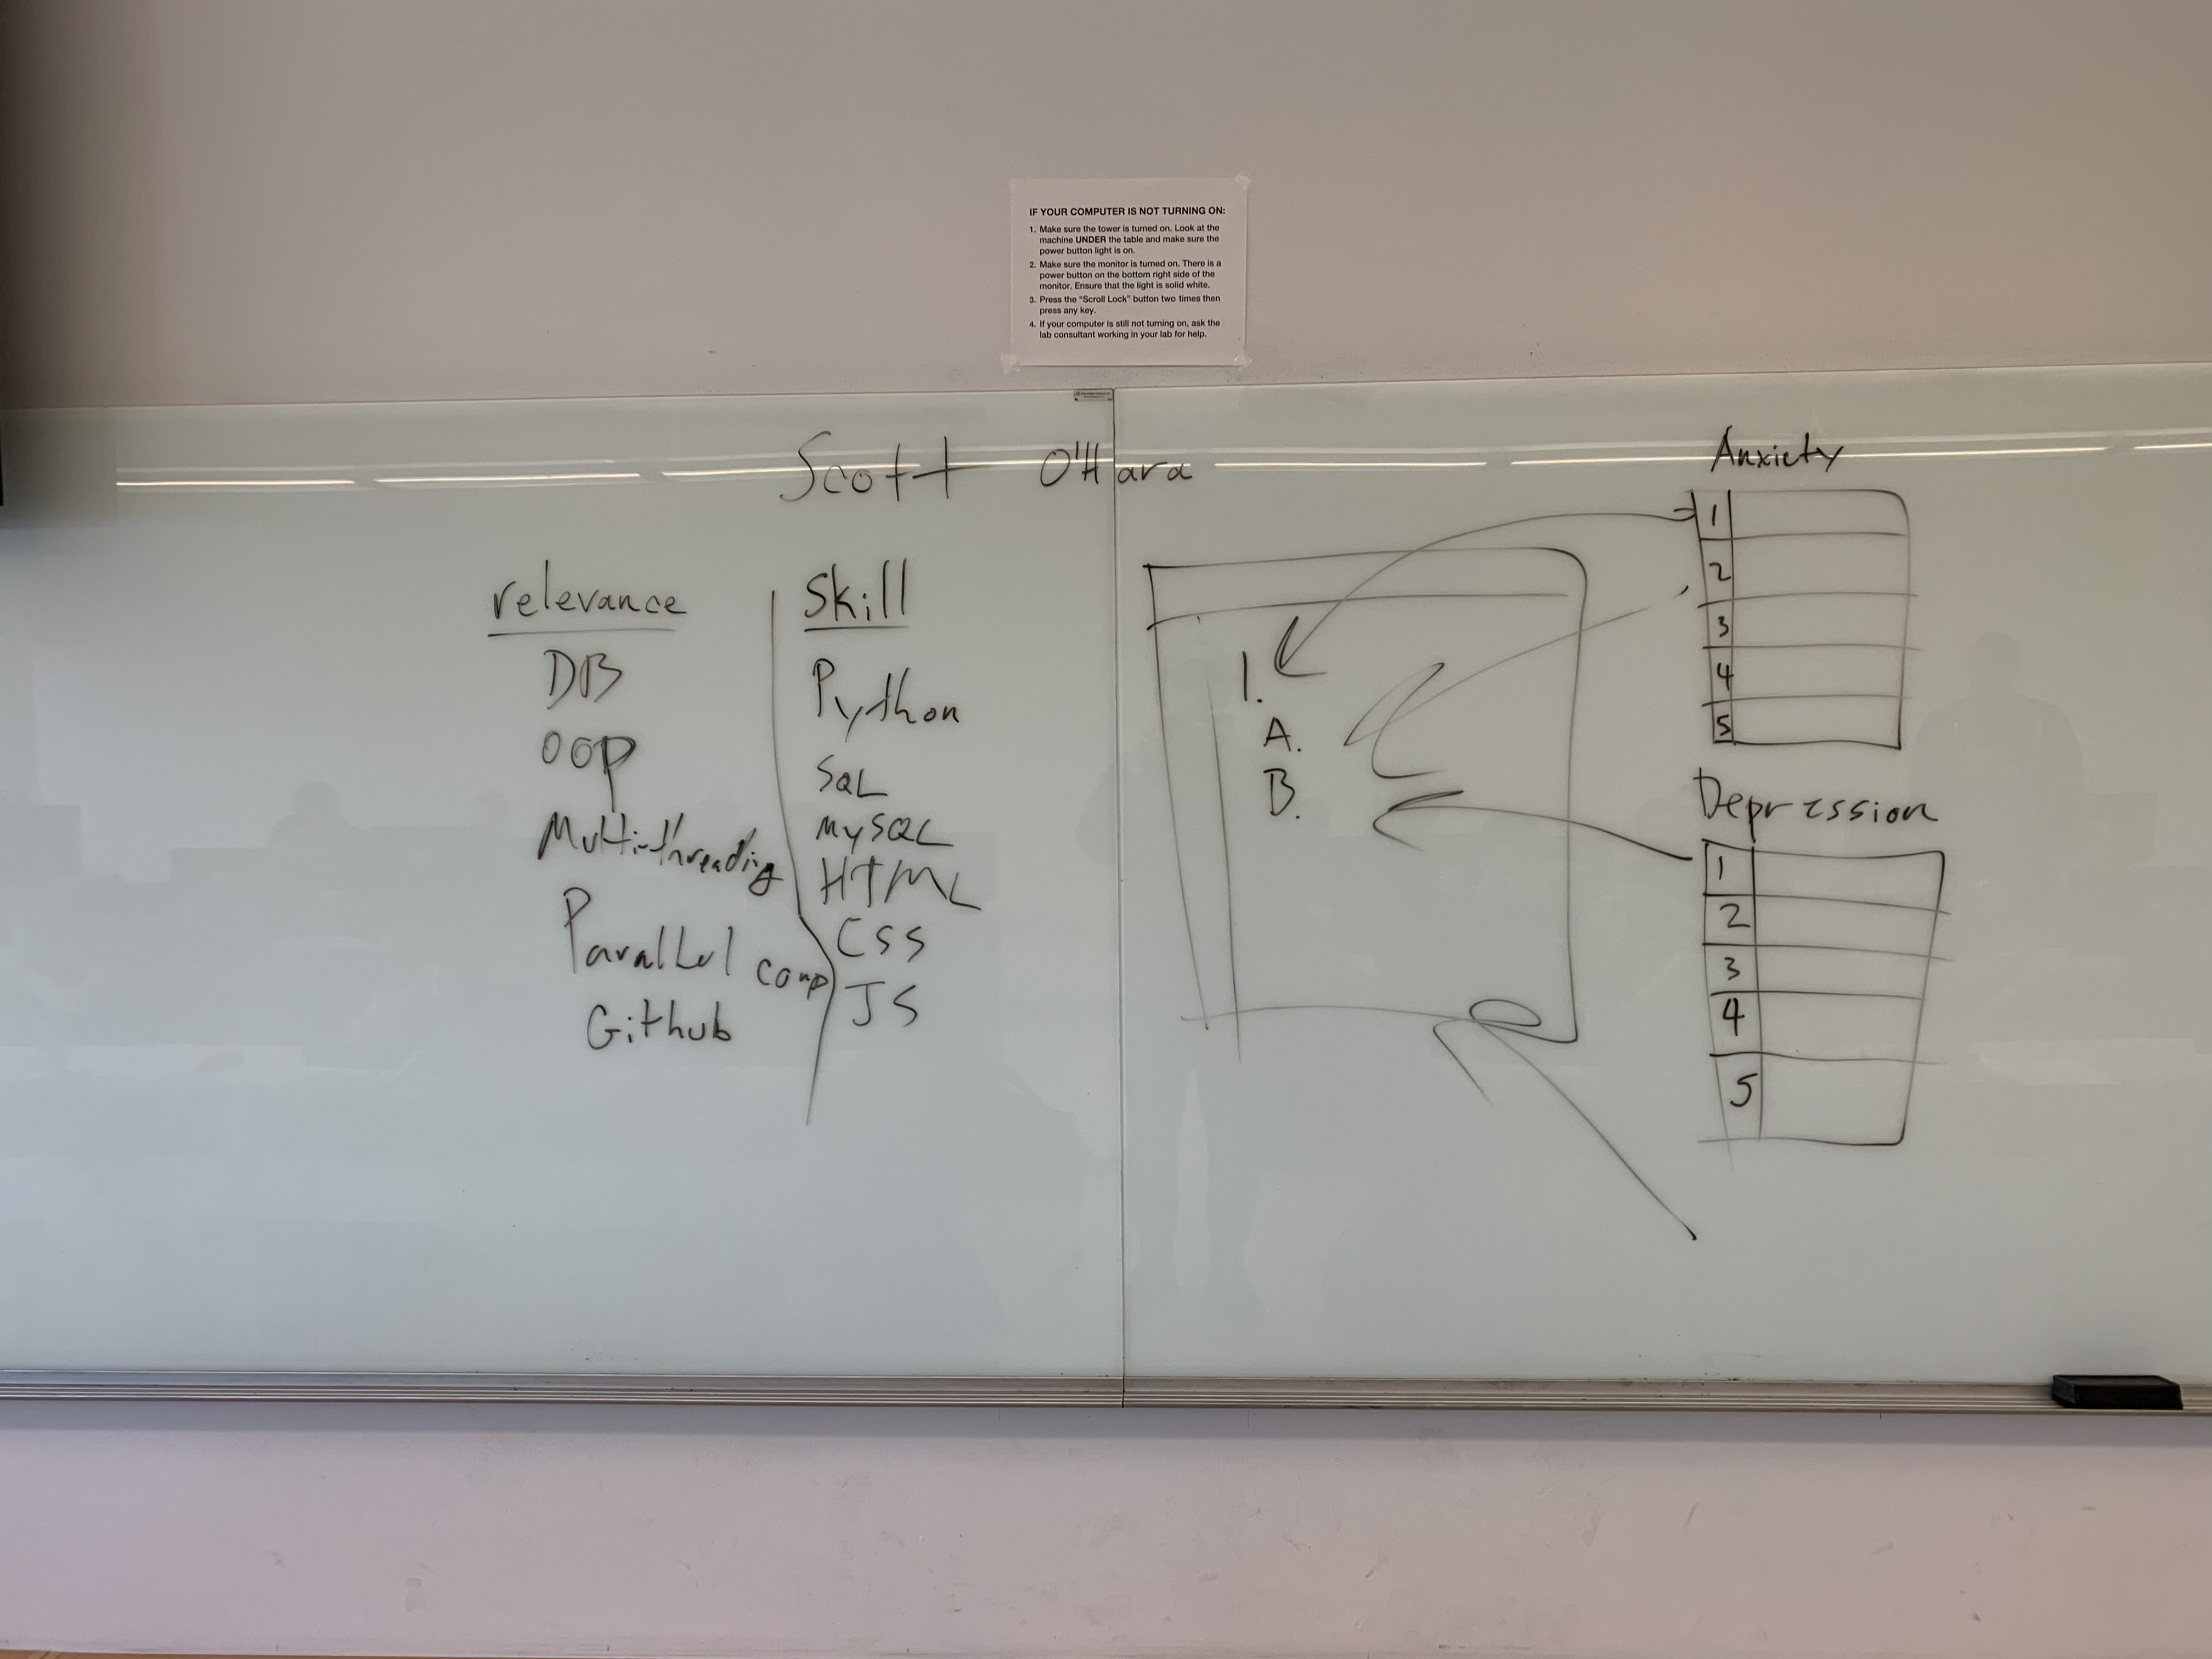 IF YOUR COMPUTER IS NOT TURNING ON:
1. Make sure the tower is turned on. Look at the
machine UNDER the table and make sure the
power button light is on.
2. Make sure the monitor is turned on. There is a
power button on the bottom right side of the
monitor. Ensure that the light is solid white.
3. Press the "Scroll Lock" button two times then
press any key.
4. If your computer is still not turning on, ask the
lab consultant working in your lab for help.
Scott O'Hara
relevance
DB
OOP
Multi-threading
Parallel comp
Github
Skill
Python
SQL
MySQL
HTML
CSS
JS
1.
A.
B.
Anxiety
1
2
3
4
5
Depression
1
2
3
4
5